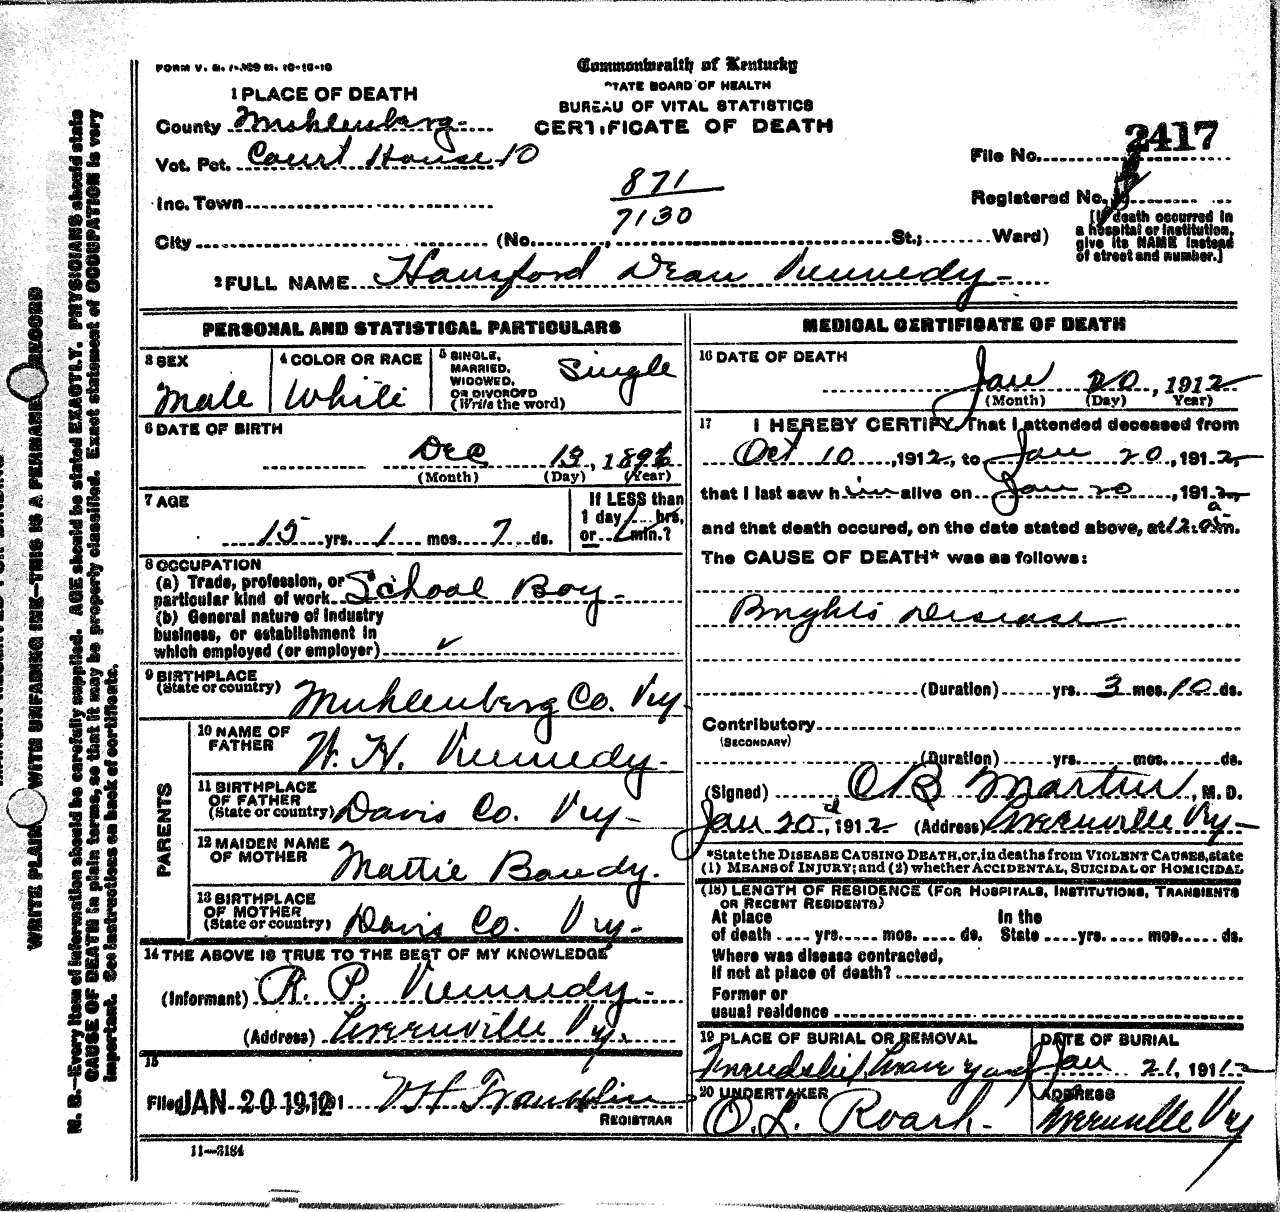 FORM V. S. 1-309 M. 10-10-10
Commonwealth of Kentucky
STATE BOARD OF HEALTH
BUREAU OF VITAL STATISTICS
CERTIFICATE OF DEATH
1 PLACE OF DEATH
County Muhlenberg
Vot. Pct. Court House 10
Inc. Town
City (No. , St.; Ward)
871
7130
File No. 2417
Registered No.
[If death occurred in
a hospital or institution,
give its NAME instead
of street and number.]
2 FULL NAME Hansford Dean Kennedy
PERSONAL AND STATISTICAL PARTICULARS
3 SEX
Male
4 COLOR OR RACE
White
5 SINGLE,
MARRIED,
WIDOWED,
OR DIVORCED
(Write the word)
Single
6 DATE OF BIRTH
Dec 13, 1896
(Month) (Day) (Year)
7 AGE
15 yrs. 1 mos. 7 ds.
If LESS than
1 day, hrs.
or min.?
8 OCCUPATION
(a) Trade, profession, or
particular kind of work School Boy
(b) General nature of industry
business, or establishment in
which employed (or employer)
9 BIRTHPLACE
(State or country) Muhlenberg Co. Ky
PARENTS
10 NAME OF
FATHER W. H. Kennedy
11 BIRTHPLACE
OF FATHER
(State or country) Davis Co. Ky
12 MAIDEN NAME
OF MOTHER Mattie
13 BIRTHPLACE
OF MOTHER
(State or country) Davis Co. Ky
14 THE ABOVE IS TRUE TO THE BEST OF MY KNOWLEDGE
(Informant) R. P. Kennedy
(Address) Greenville Ky.
15
Filed JAN 20 1912 191 Franklin
REGISTRAR
11—3184
MEDICAL CERTIFICATE OF DEATH
16 DATE OF DEATH
Jan 20, 1912
(Month) (Day) (Year)
17 I HEREBY CERTIFY, That I attended deceased from
Oct 10, 1912, to Jan 20, 1912,
that I last saw him alive on Jan 20, 1912,
and that death occured, on the date stated above, at 12.05 a m.
The CAUSE OF DEATH* was as follows:
Brights Disease
(Duration) yrs. 3 mos. 10 ds.
Contributory
(SECONDARY)
(Duration) yrs. mos. ds.
(Signed) O B Martin, M. D.
Jan 20 d, 1912 (Address) Greenville Ky
*State the DISEASE CAUSING DEATH, or, in deaths from VIOLENT CAUSES, state
(1) MEANS OF INJURY; and (2) whether ACCIDENTAL, SUICIDAL or HOMICIDAL
(18) LENGTH OF RESIDENCE (FOR HOSPITALS, INSTITUTIONS, TRANSIENTS
OR RECENT RESIDENTS)
At place In the
of death yrs. mos. ds. State yrs. mos. ds.
Where was disease contracted,
If not at place of death?
Former or
usual residence
19 PLACE OF BURIAL OR REMOVAL
Friendship Grave yard
DATE OF BURIAL
Jan 21, 1912
20 UNDERTAKER
O. L. Roark
ADDRESS
Greenville Ky
N. B.—Every item of information should be carefully supplied. AGE should be stated EXACTLY. PHYSICIANS should state
CAUSE OF DEATH in plain terms, so that it may be properly classified. Exact statement of OCCUPATION is very
important. See instructions on back of certificate.
WRITE PLAIN WITH UNFADING INK—THIS IS A PERMANE RECORD